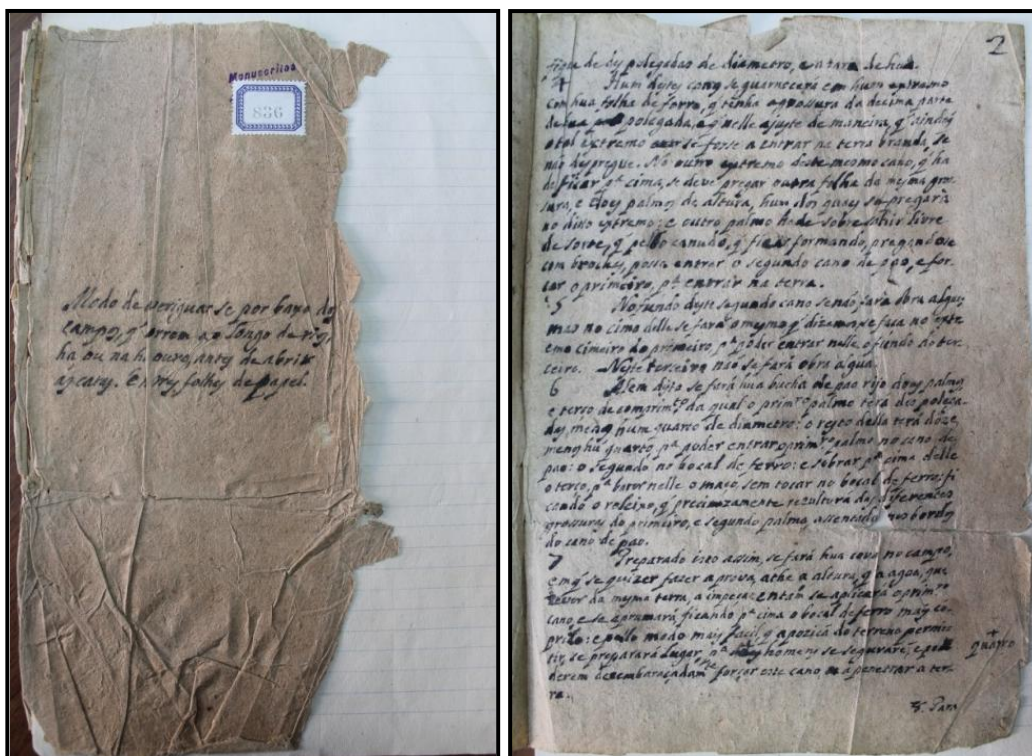 Manuscritos
836
Modo de averiguar se por baxo dos
campos, q̃ correm ao longo de rios,
ha ou naõ ha ouro, antes de abrir
as catas. Em tres folhas de papel.
2
fique de dez polegadas de diametro, e a tara de hua.
4 Hum destes canos se guarnecerá em hum extremo
com hua folha de ferro, q̃ tenha a grossura da decima parte
de hua polegada, e q̃ nelle ajuste de maneira, q̃ ainda q̃
o tal extremo se fosse a entrar na terra branda, se
naõ despregue. No outro extremo deste mesmo cano, q̃ ha
de ficar pª cima, se deve pregar outra folha da mesma gros-
sura, e dous palmos de altura, hum dos quaes se pregaria
no dito extremo: e outro palmo ha de sobresahir livre
de sorte, q̃ pello canudo, q̃ fica formando, pregandose
com brochas, possa entrar o segundo cano de pao, e for-
car o primeiro, pª entrar na terra.
5 No fundo deste segundo cano se naõ fará obra algua,
mas no cimo delle se fará o mesmo q̃ dizemos se faça no ext-
emo cimeiro do primeiro, pª poder entrar nelle o fundo do ter-
ceiro. Neste terceiro naõ se fará obra algua.
6 Alem disto se fará hua bucha de pao rijo dous palmos
e terço de comprimᵗᵒ da qual o primʳᵒ palmo terá dez polega-
das, menos hum quarto de diametro: o resto della terá doze,
menos hũ quarto, pª poder entrar o primʳᵒ palmo no cano de
pao: o segundo no bocal de ferro: e sobrar pª cima delle
o terço, pª bater nelle o maço, sem tocar no bocal de ferro: fi-
cando o releixo, q̃ precizamente rezultará das diferentes
grossuras do primeiro, e segundo palmo, assentado nos bordos
do cano de pao.
7 Preparado isto assim, se fará hua cova no campo,
em q̃ se quizer fazer a prova, athe a altura, q̃ a agua, que
da mesma terra, a impeça: entam se aplicará o primʳᵒ
cano, e se aprumará ficando pª cima o bocal de ferro mais co-
prido: e pello modo mais facil, q̃ a pozicá do terreno permi-
tir, se preparará lugar, pª homens se segurarẽ, e po-
derem dezembaraçadamᵗᵉ forçar este cano pª penetrar a ter-
ra.
quatro
Para